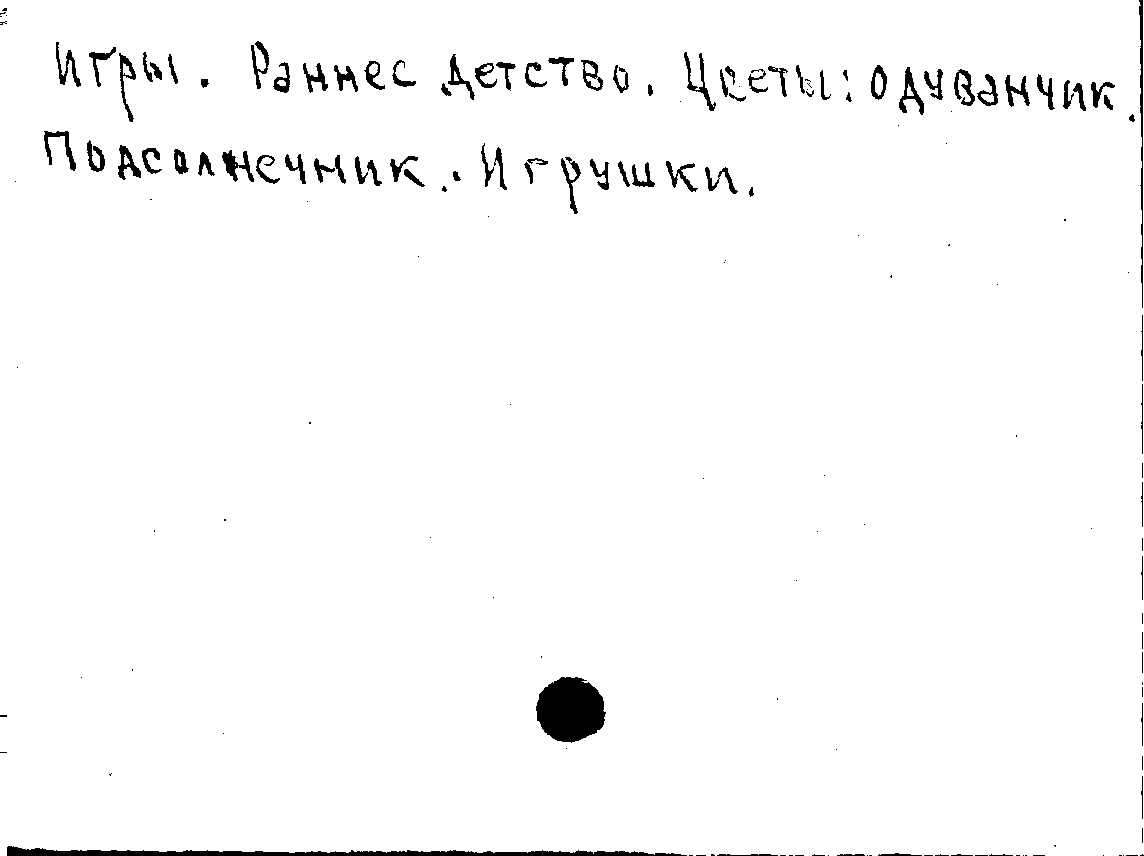 Игры. Раннее детство. Цветы: одуванчик.
Подсолнечник. Игрушки.